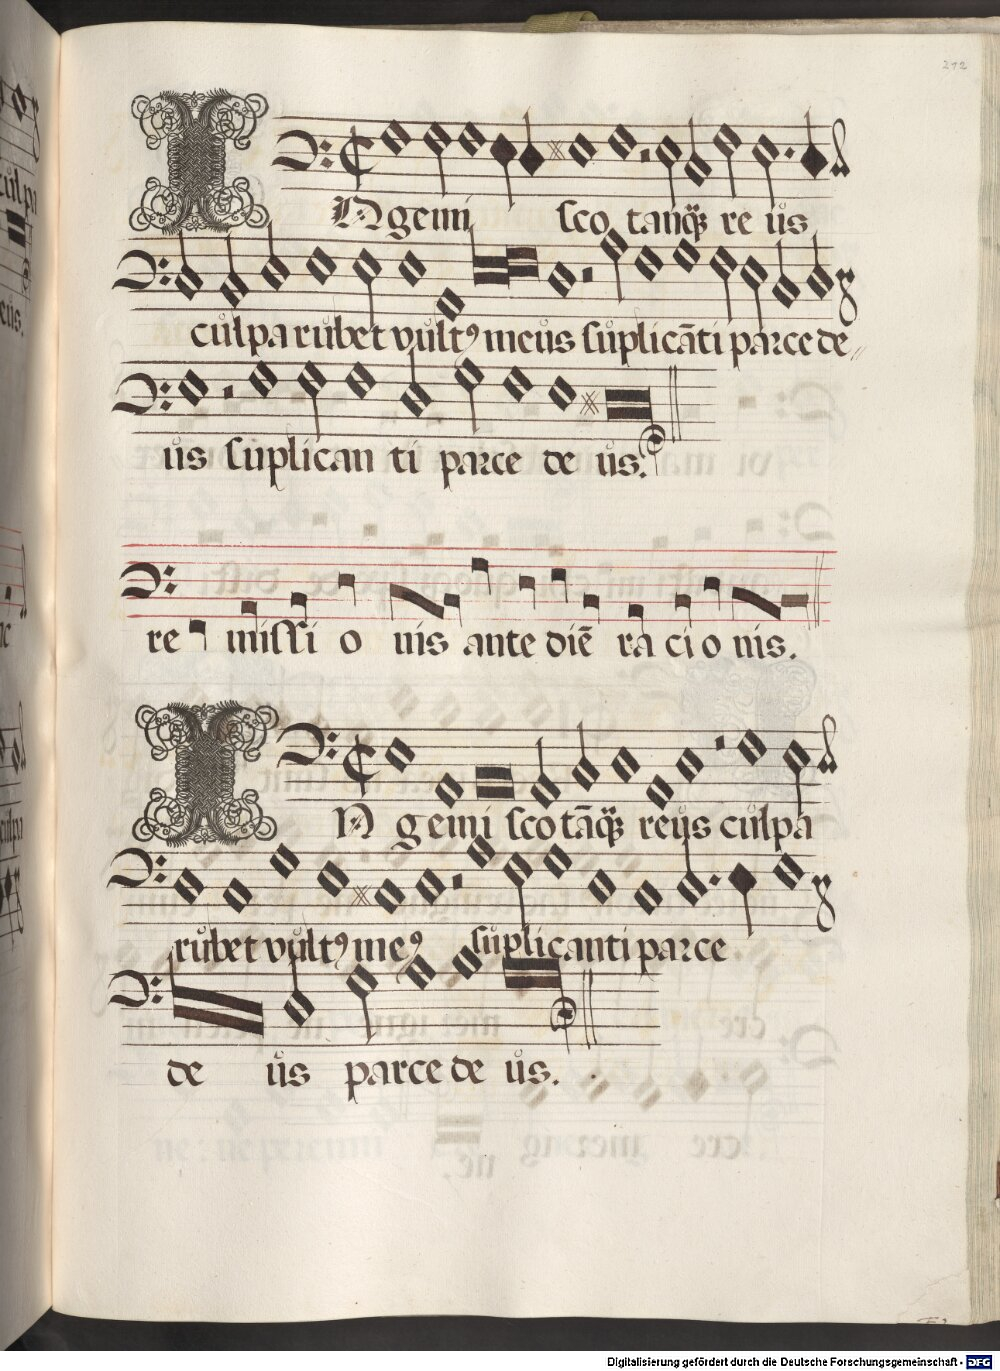 212
INgemi sco tanq̃ꝫ re us
culpa rubet vultꝰ meus suplicãti parce de〃
us suplican ti parce de us.
re missi o nis ante diẽ ra ci o nis.
IN gemi sco tãqꝫ reus culpa
rubet vultꝰ meꝰ suplicanti parce
de us parce de us.
Digitalisierung gefördert durch die Deutsche Forschungsgemeinschaft - DFG